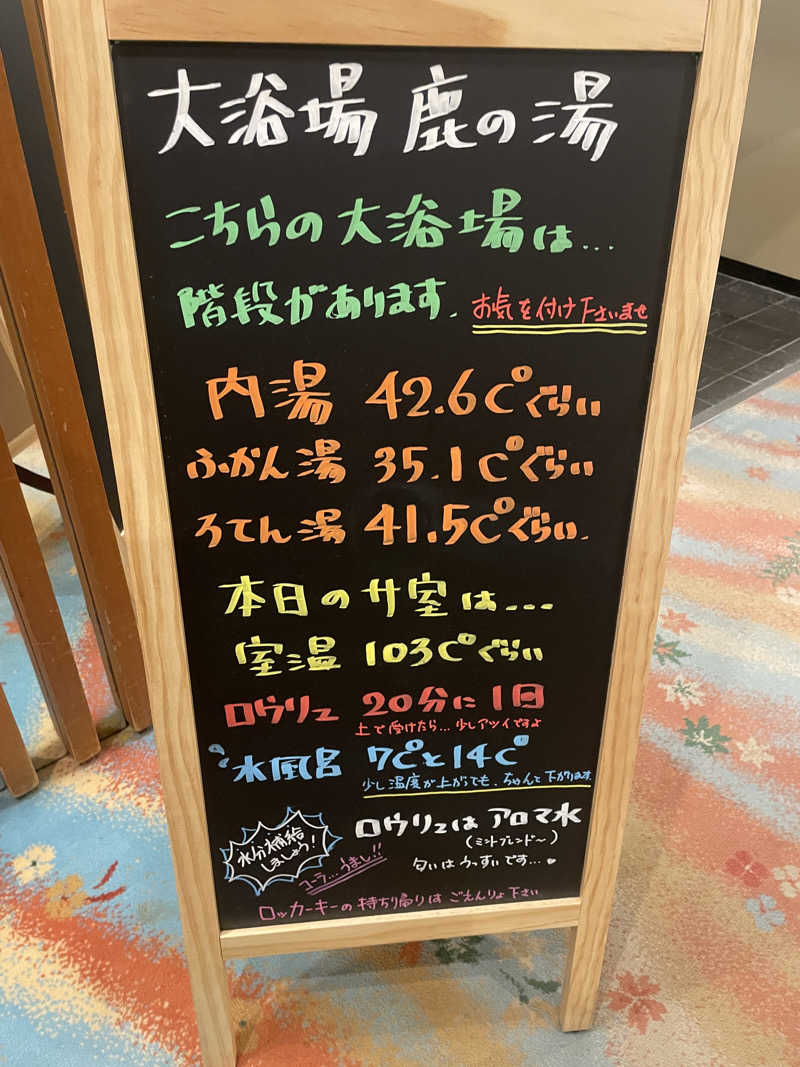 大浴場 鹿の湯
こちらの大浴場は...
階段があります。 お気を付け下さいませ
内湯 42.6C°ぐらい
ふかん湯 35.1C°ぐらい
ろてん湯 41.5C°ぐらい.
本日のサ室は...
室温 103C°ぐらい
ロウリュ 20分に1日
上で受けたら... 少しアツイですよ
水風呂 7C°と14C°
少し温度が上がっても、ちゃんと下がります
ロウリュは アロマ水
(ミントブレンド〜)
匂いはうっすいです...
水分補給
しましょう!
コーラ...うまし!!
ロッカーキーの持ち帰りは ごえんりょ下さい